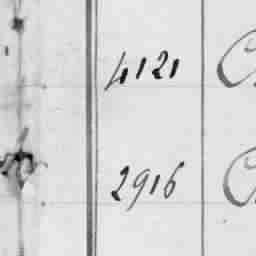 4121
2916